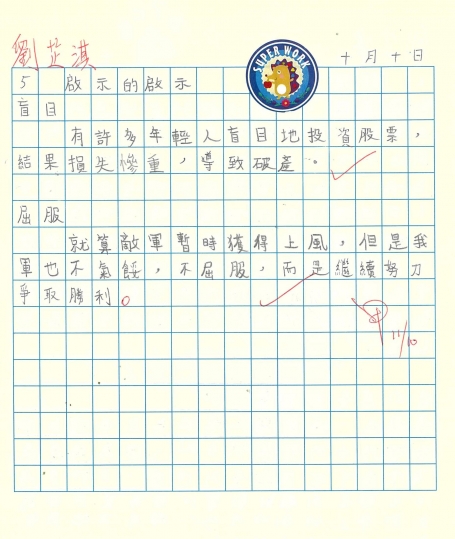 劉芷淇
SUPER WORK
十月十日
5 啟示的啟示
盲目
有許多年輕人盲目地投資股票，
結果損失慘重，導致破產。
屈服
就算敵軍暫時獲得上風，但是我
軍也不氣餒，不屈服，而是繼續努力
爭取勝利。
11/10